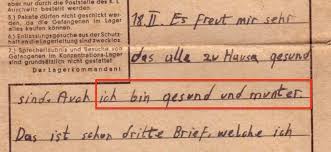 aber nur durch die Poststelle des K. L.
Auschwitz bestellt werden.
4.) Pakete dürfen nicht geschickt wer-
den, da die Gefangenen im Lager
alles kaufen können.
6.) Entlassungsgesuche aus der Schutz-
haft an die Lagerleitung sind zwecklos.
7.) Sprecherlaubnis und Besuche von
Gefangenen im Konzentrations-Lager
sind grundsätzlich nicht gestattet.
Der Lagerkommandant
18.II. Es Freut mir sehr
das alle zu Hause gesund
sind. Auch ich bin gesund und munter.
Das ist schon dritte Brief, welche ich